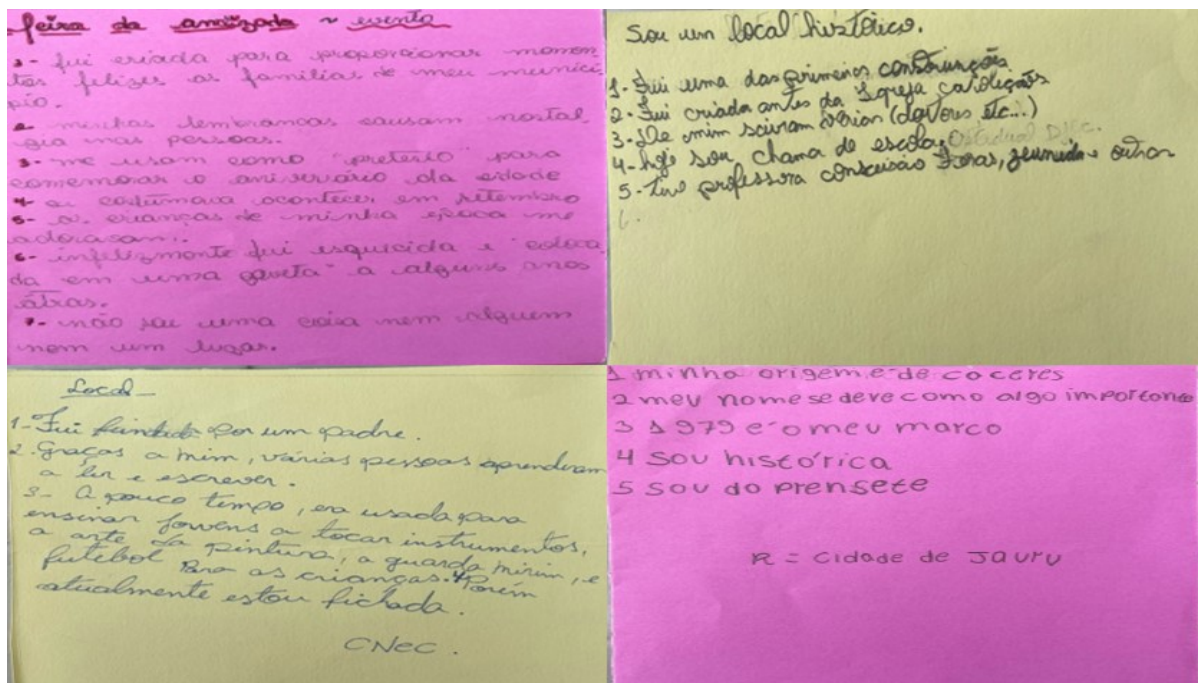 feira da amizade ~ evento
1- fui criada para proporcionar momen
tos felizes as familias de meu munici
pio.
2- minhas lembrancas causam nostal
gia nas pessoas.
3- me usam como "pretexto" para
comemorar o aniversário da cidade
4- eu costumava acontecer em setembro
5- as crianças de minha época me
adoravam.
6- infelizmente fui esquecida e "coloca
da em uma gaveta" a alguns anos
átras.
7- não sou uma coisa nem alguem
nem um lugar.
Sou um local histórico.
1- Fui uma das primeiras construções
2- Fui criada antes da Igreja católica
3- De mim sairam várias (doutores etc...)
4- hoje sou chama de escola Estadual
5- tive professora conseisão Feras, e outras
6.
Local
1- Fui fundada por um padre.
2. Graças a mim, várias pessoas aprenderam
a ler e escrever.
3- A pouco tempo, era usada para
ensinar jovens a tocar instrumentos,
a arte da pintura, a guarda mirim, e
futebol para as crianças. 4 Porém
atualmente estou fichada.
CNEC.
1 minha origem e de caceres
2 meu nome se deve como algo importante
3 1979 e o meu marco
4 Sou histórica
5 Sou do prensete
R = Cidade de Jauru